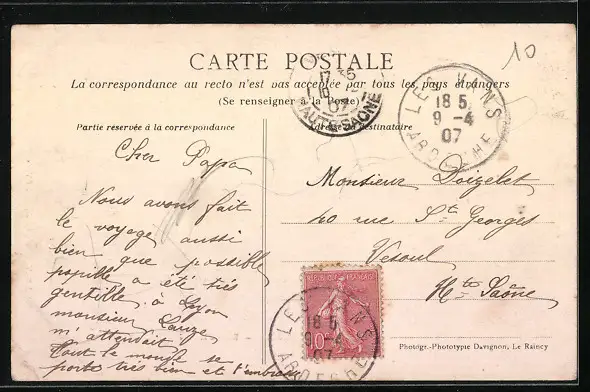 10
CARTE POSTALE
La correspondance au recto n'est pas acceptée par tous les pays étrangers
(Se renseigner à la Poste)
Partie réservée à la correspondance
Adresse du destinataire
HAUTE-SAONE
LES VANS
18 5
9 -4
07
ARDECHE
Cher Papa
Nous avons fait
le voyage aussi
bien que possible
a été très
gentille. à Lyon
monsieur
m'attendait
Tout le monde se
porte très bien et t'embrasse
Monsieur
40 rue St Georges
Vesoul
Hte Saône
REPUBLIQUE FRANCAISE
10c
LES VANS
18 5
9 -4
07
ARDECHE
Photogr.-Phototypie Davignon, Le Raincy